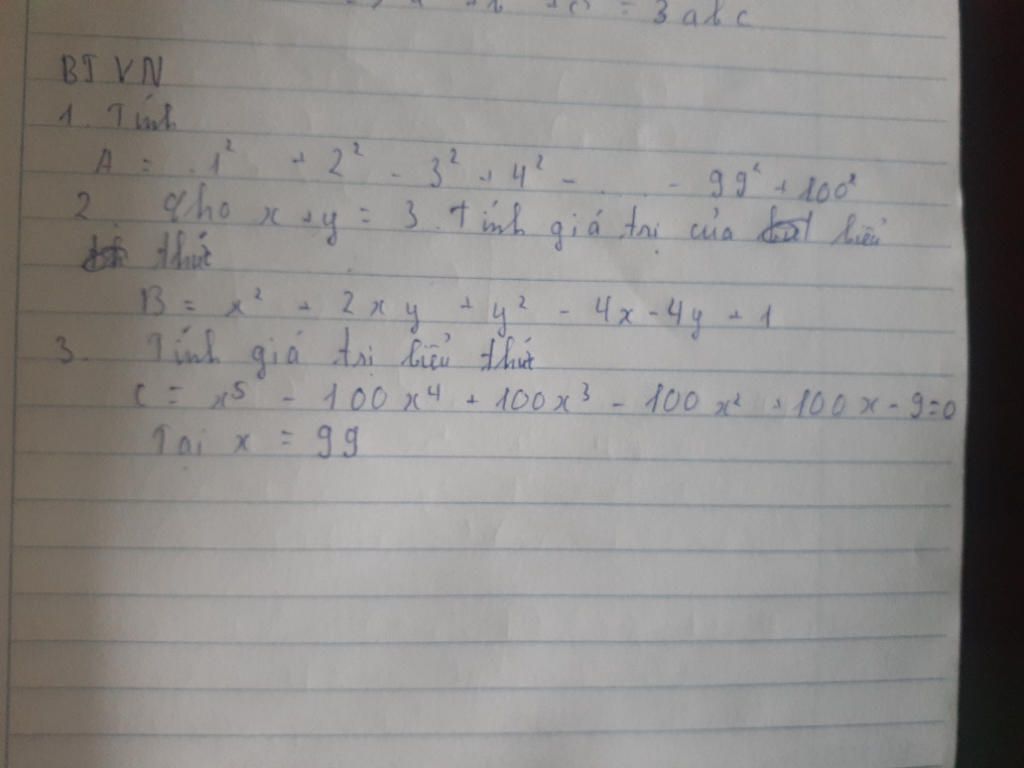 = 3abc
BTVN
1. Tính
A = 1² + 2² - 3² + 4² - ... - 99² + 100²
2. Cho x + y = 3. Tính giá trị của biểu
thức
B = x² + 2xy + y² - 4x - 4y + 1
3. Tính giá trị biểu thức
C = x⁵ - 100x⁴ + 100x³ - 100x² + 100x - 9 = 0
Tại x = 99